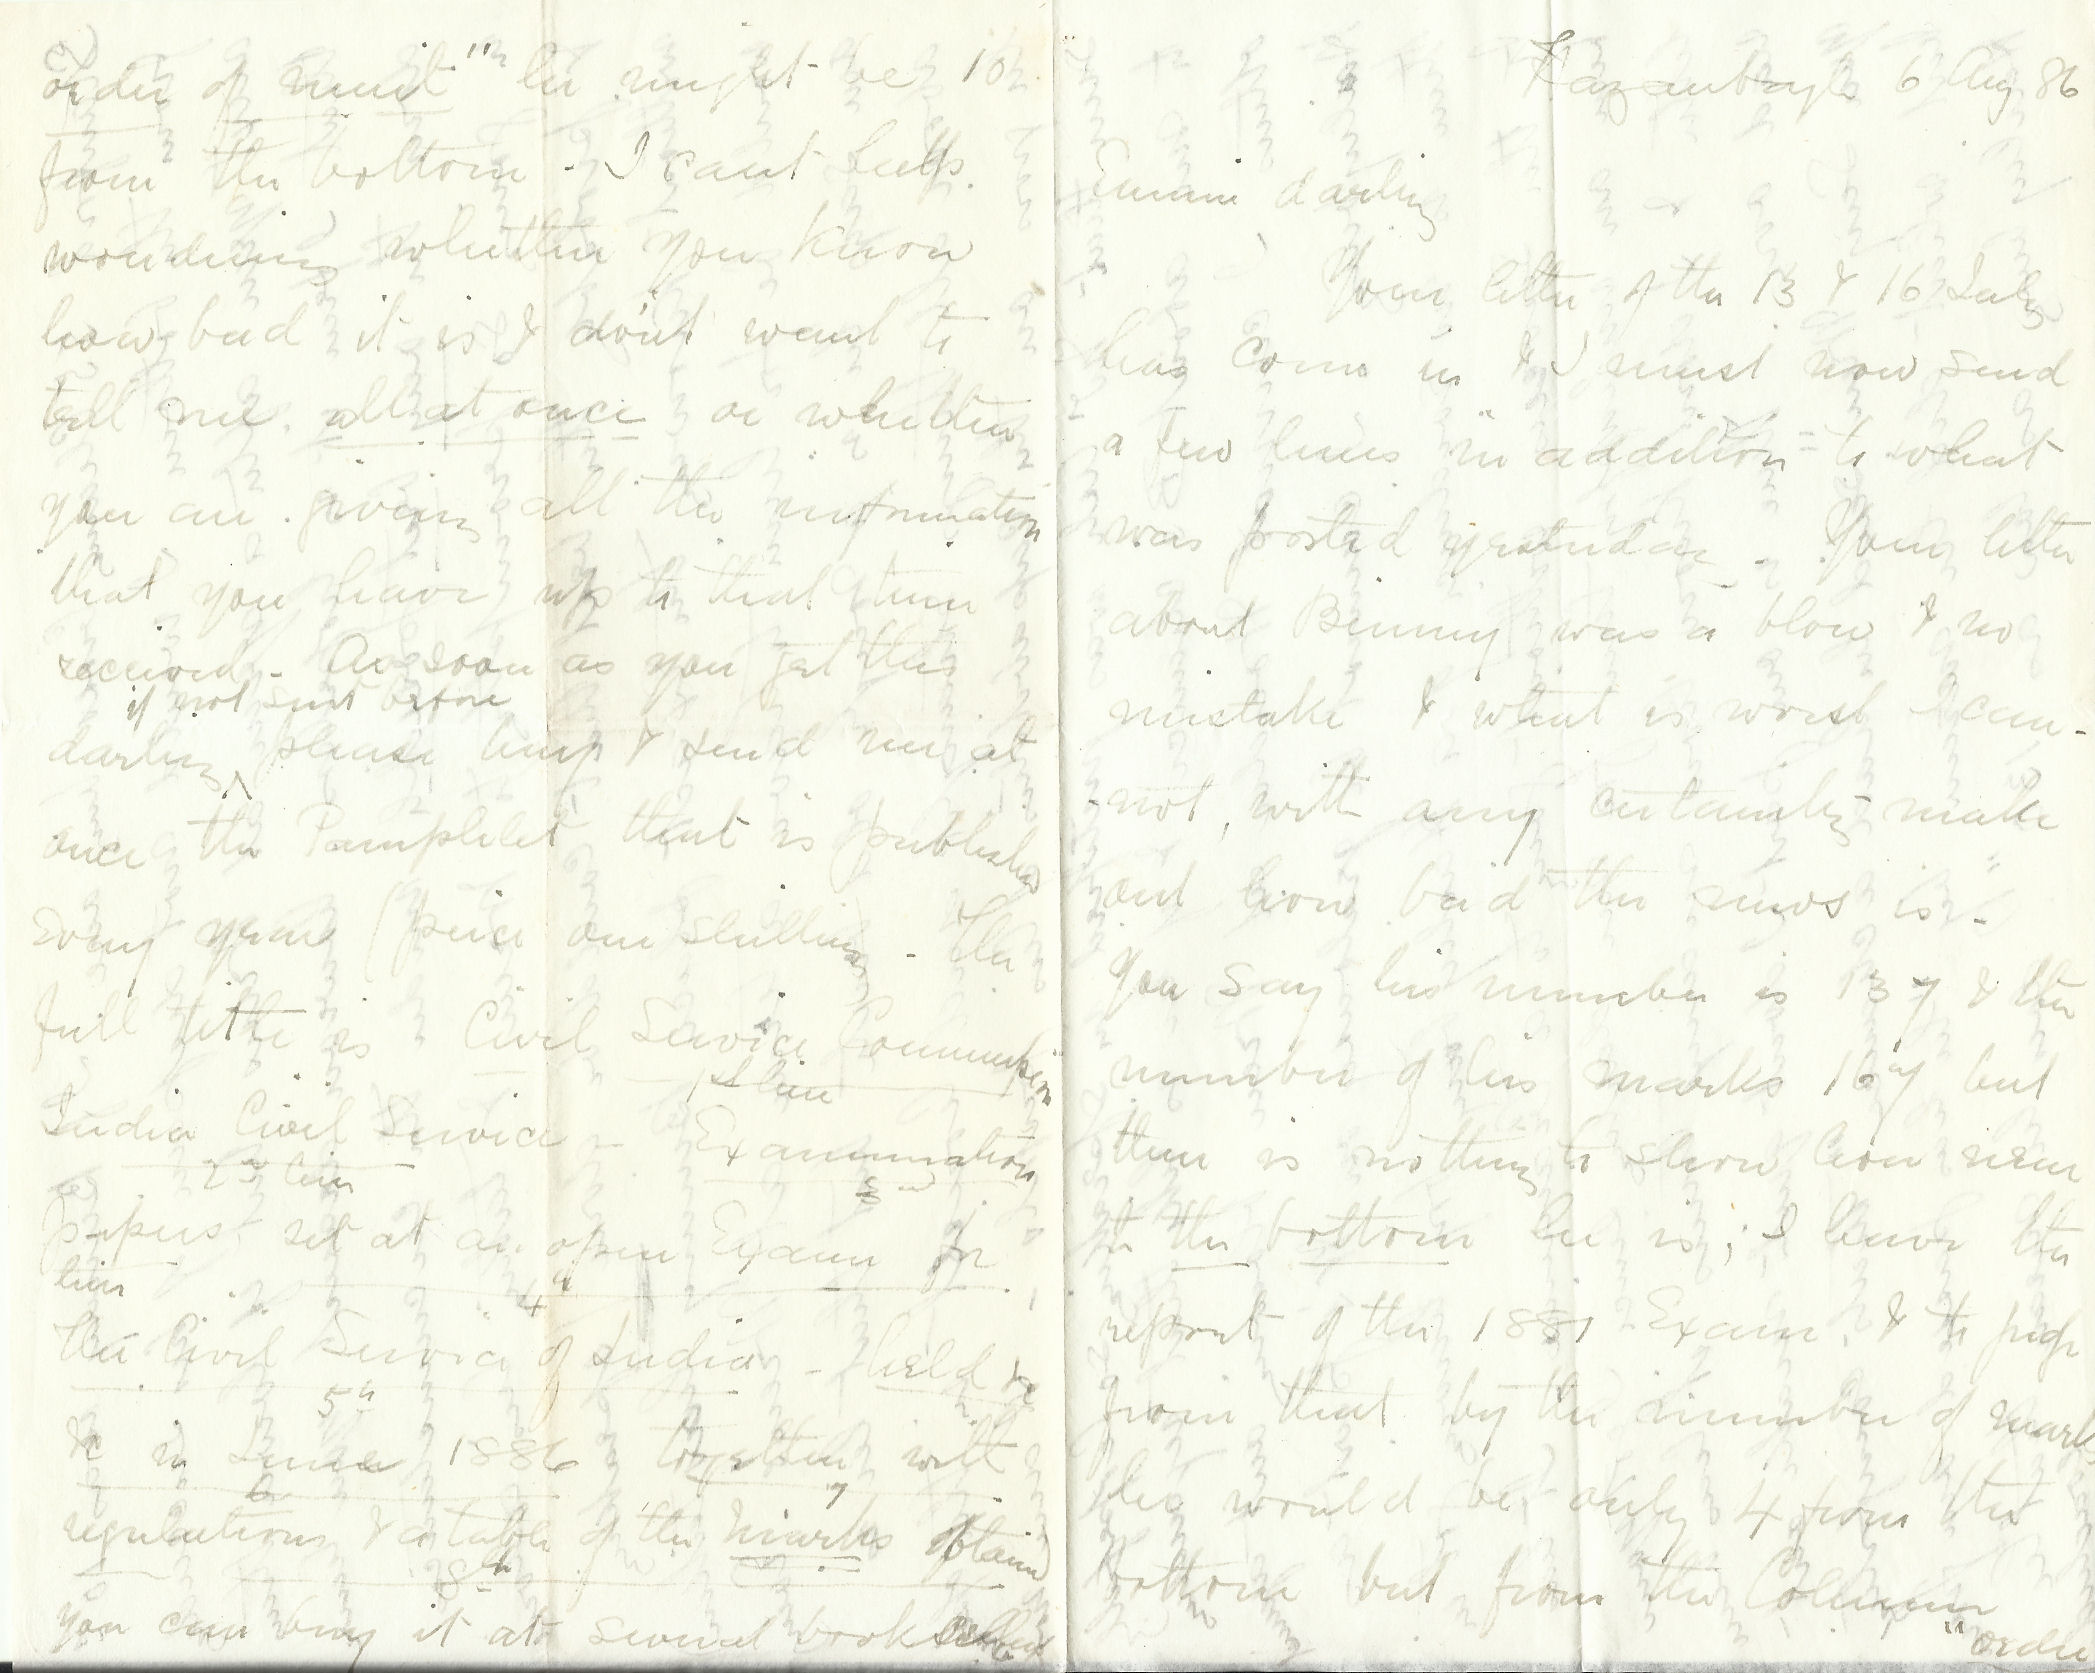 6 Aug 86
Emmie darling
Your letter of the 13 & 16 July
has come in & I must now send
a few lines in addition to what
was posted yesterday - Your letter
about Binny was a blow & no
mistake & what is worst I can-
-not, with any certainty make
out how bad the news is -
You say his number is 137 & the
number of his marks 167 but
there is nothing to show how near
to the bottom he is; I have the
report of the 1881 Exam. & to judge
from that by the number of marks
he would be only 4 from the
bottom but from the Column
"order
2)
order of merit" he might be 10
from the bottom - I cant help
wondering whether you know
how bad it is & don't want to
tell me all at once or whether
you are giving all the information
that you have up to that time
received - As soon as you get this
if not sent before
darling ^ please buy & send me at
once the Pamphlet that is published
every year (price one shilling - The
full title is "Civil Service Commission
1st line
India Civil Service - Examination
2nd line 3rd
papers set at an open Exam for
line 4th
the Civil Service of India - held &c
5th
&c in June 1886 together with
6 7
regulations & a table of the marks obtained
8th
you can buy it at several booksellers